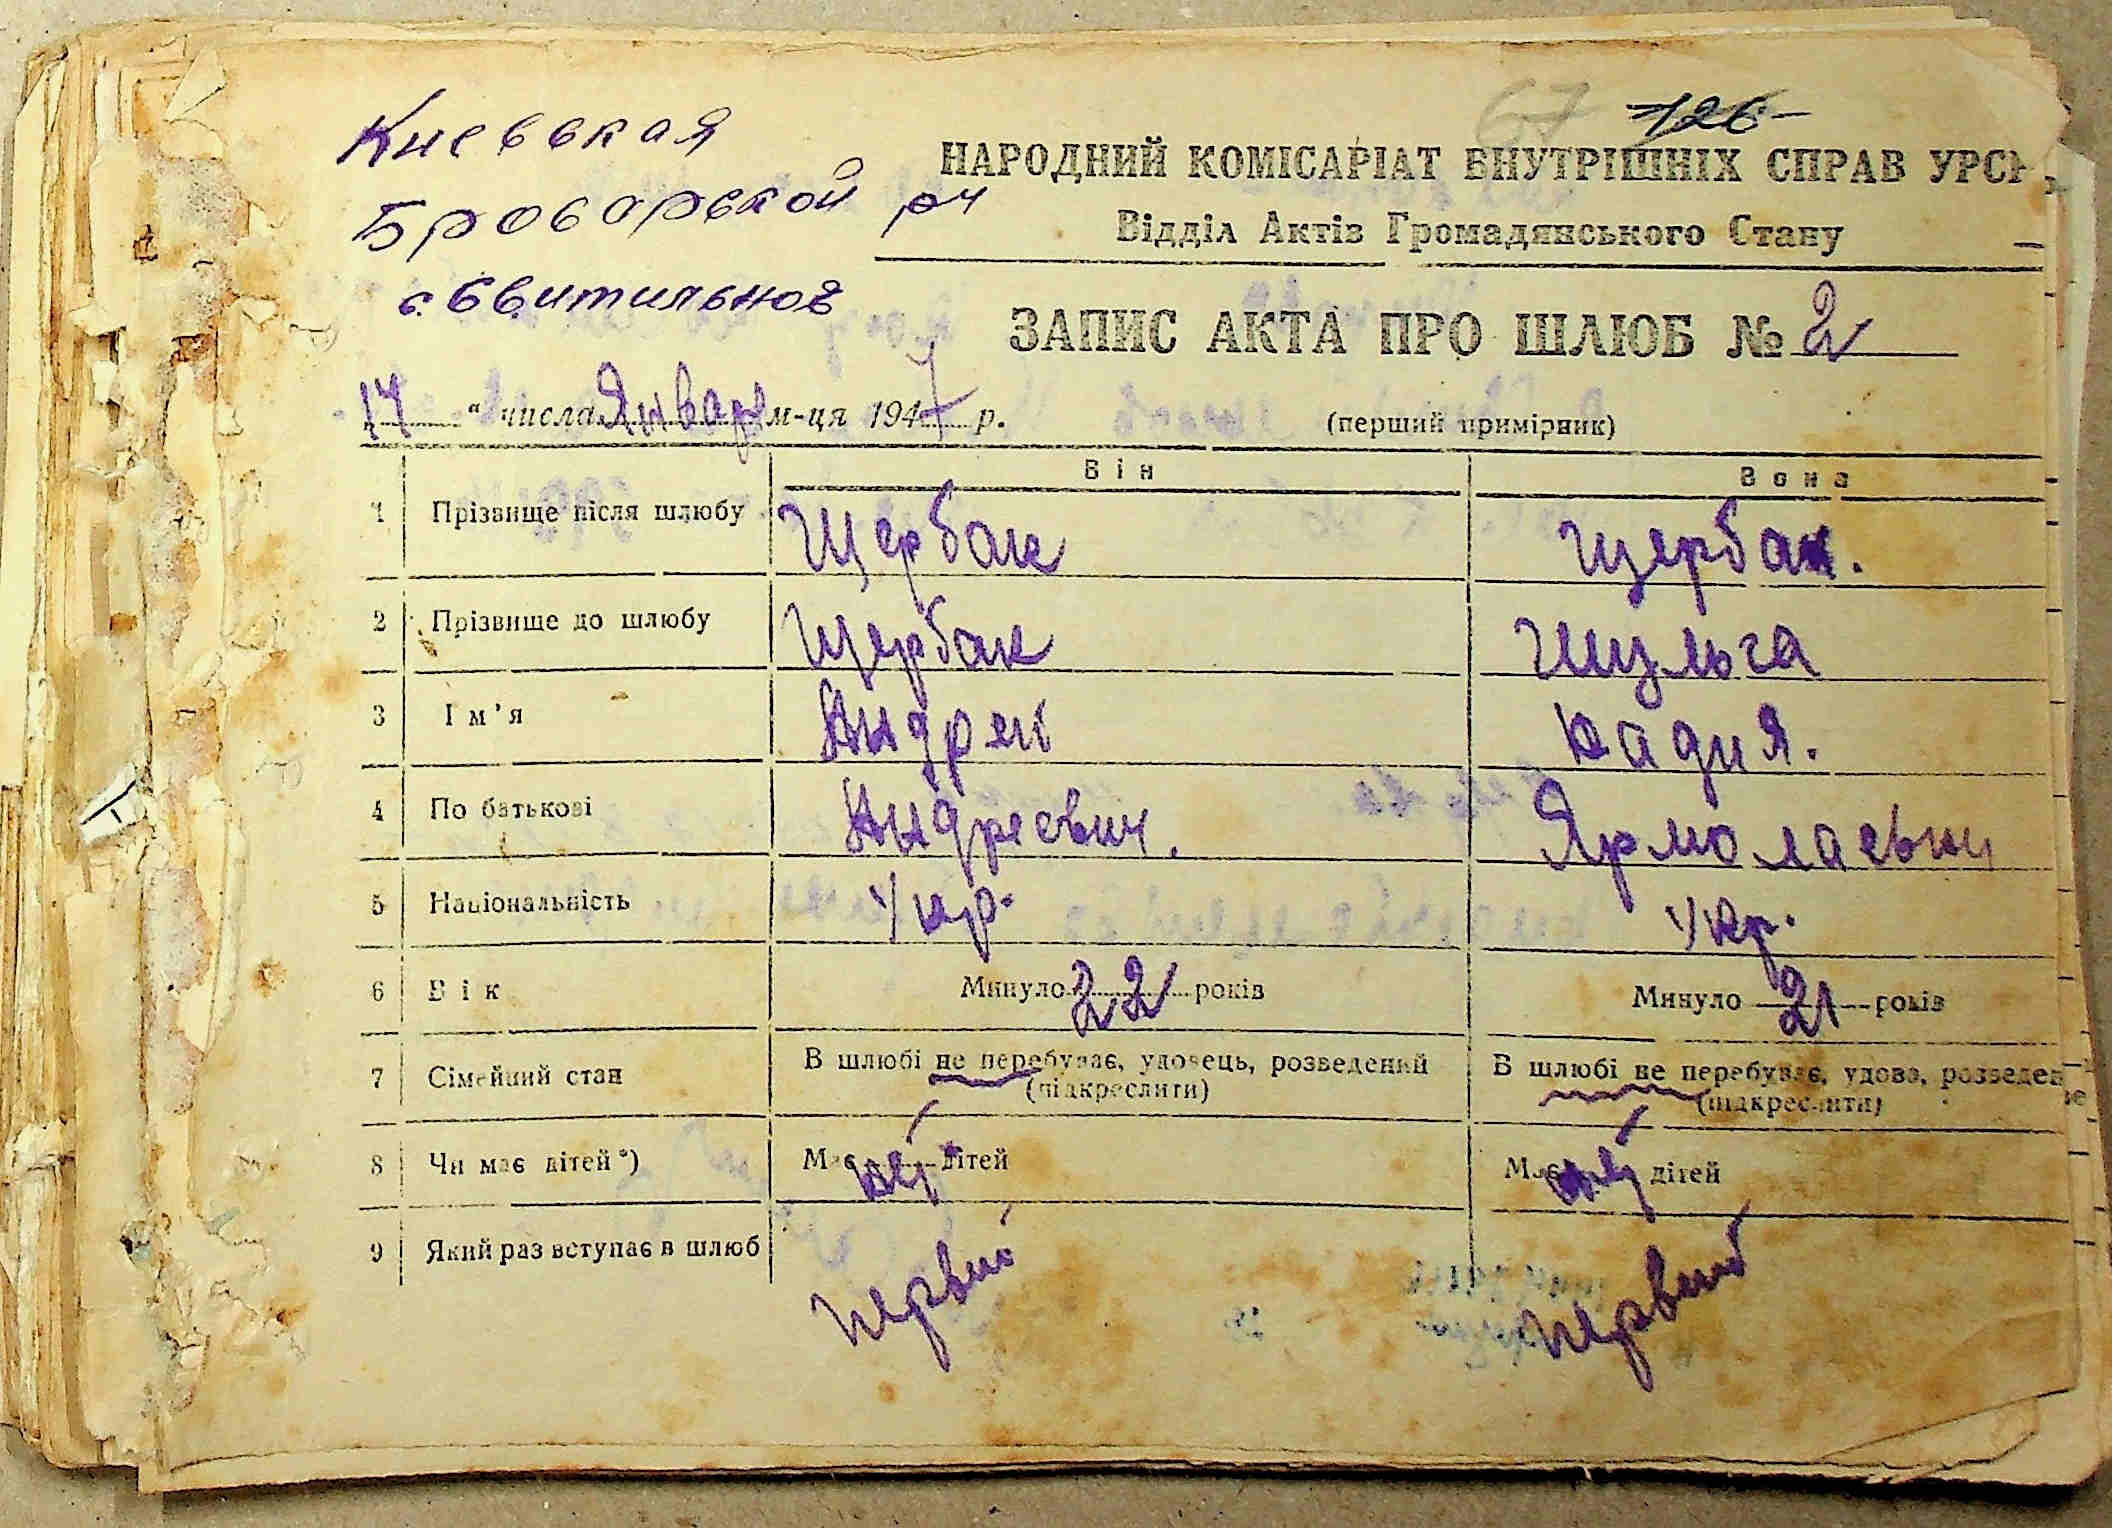 Киевская
Броварской рн
с. Свитильнов
67 126
НАРОДНИЙ КОМІСАРІАТ ВНУТРІШНІХ СПРАВ УРСР
Відділ Актів Громадянського Стану
ЗАПИС АКТА ПРО ШЛЮБ № 2
17 " числа Январ м-ця 1947 р.
(перший примірник)
Він Вона
1 Прізвище після шлюбу Щербак Щербак.
2 Прізвище до шлюбу Щербак Шульга
3 Ім'я Андрей Надия.
4 По батькові Андреевич. Ярмолаевни
5 Національність Укр. Укр.
6 Вік Минуло 22 років Минуло 21 років
7 Сімейний стан В шлюбі не перебуває, удовець, розведений В шлюбі не перебуває, удова, розведен
(підкреслити) (підкреслити)
8 Чи має дітей*) Має нет дітей Має нет дітей
9 Який раз вступає в шлюб первий первий